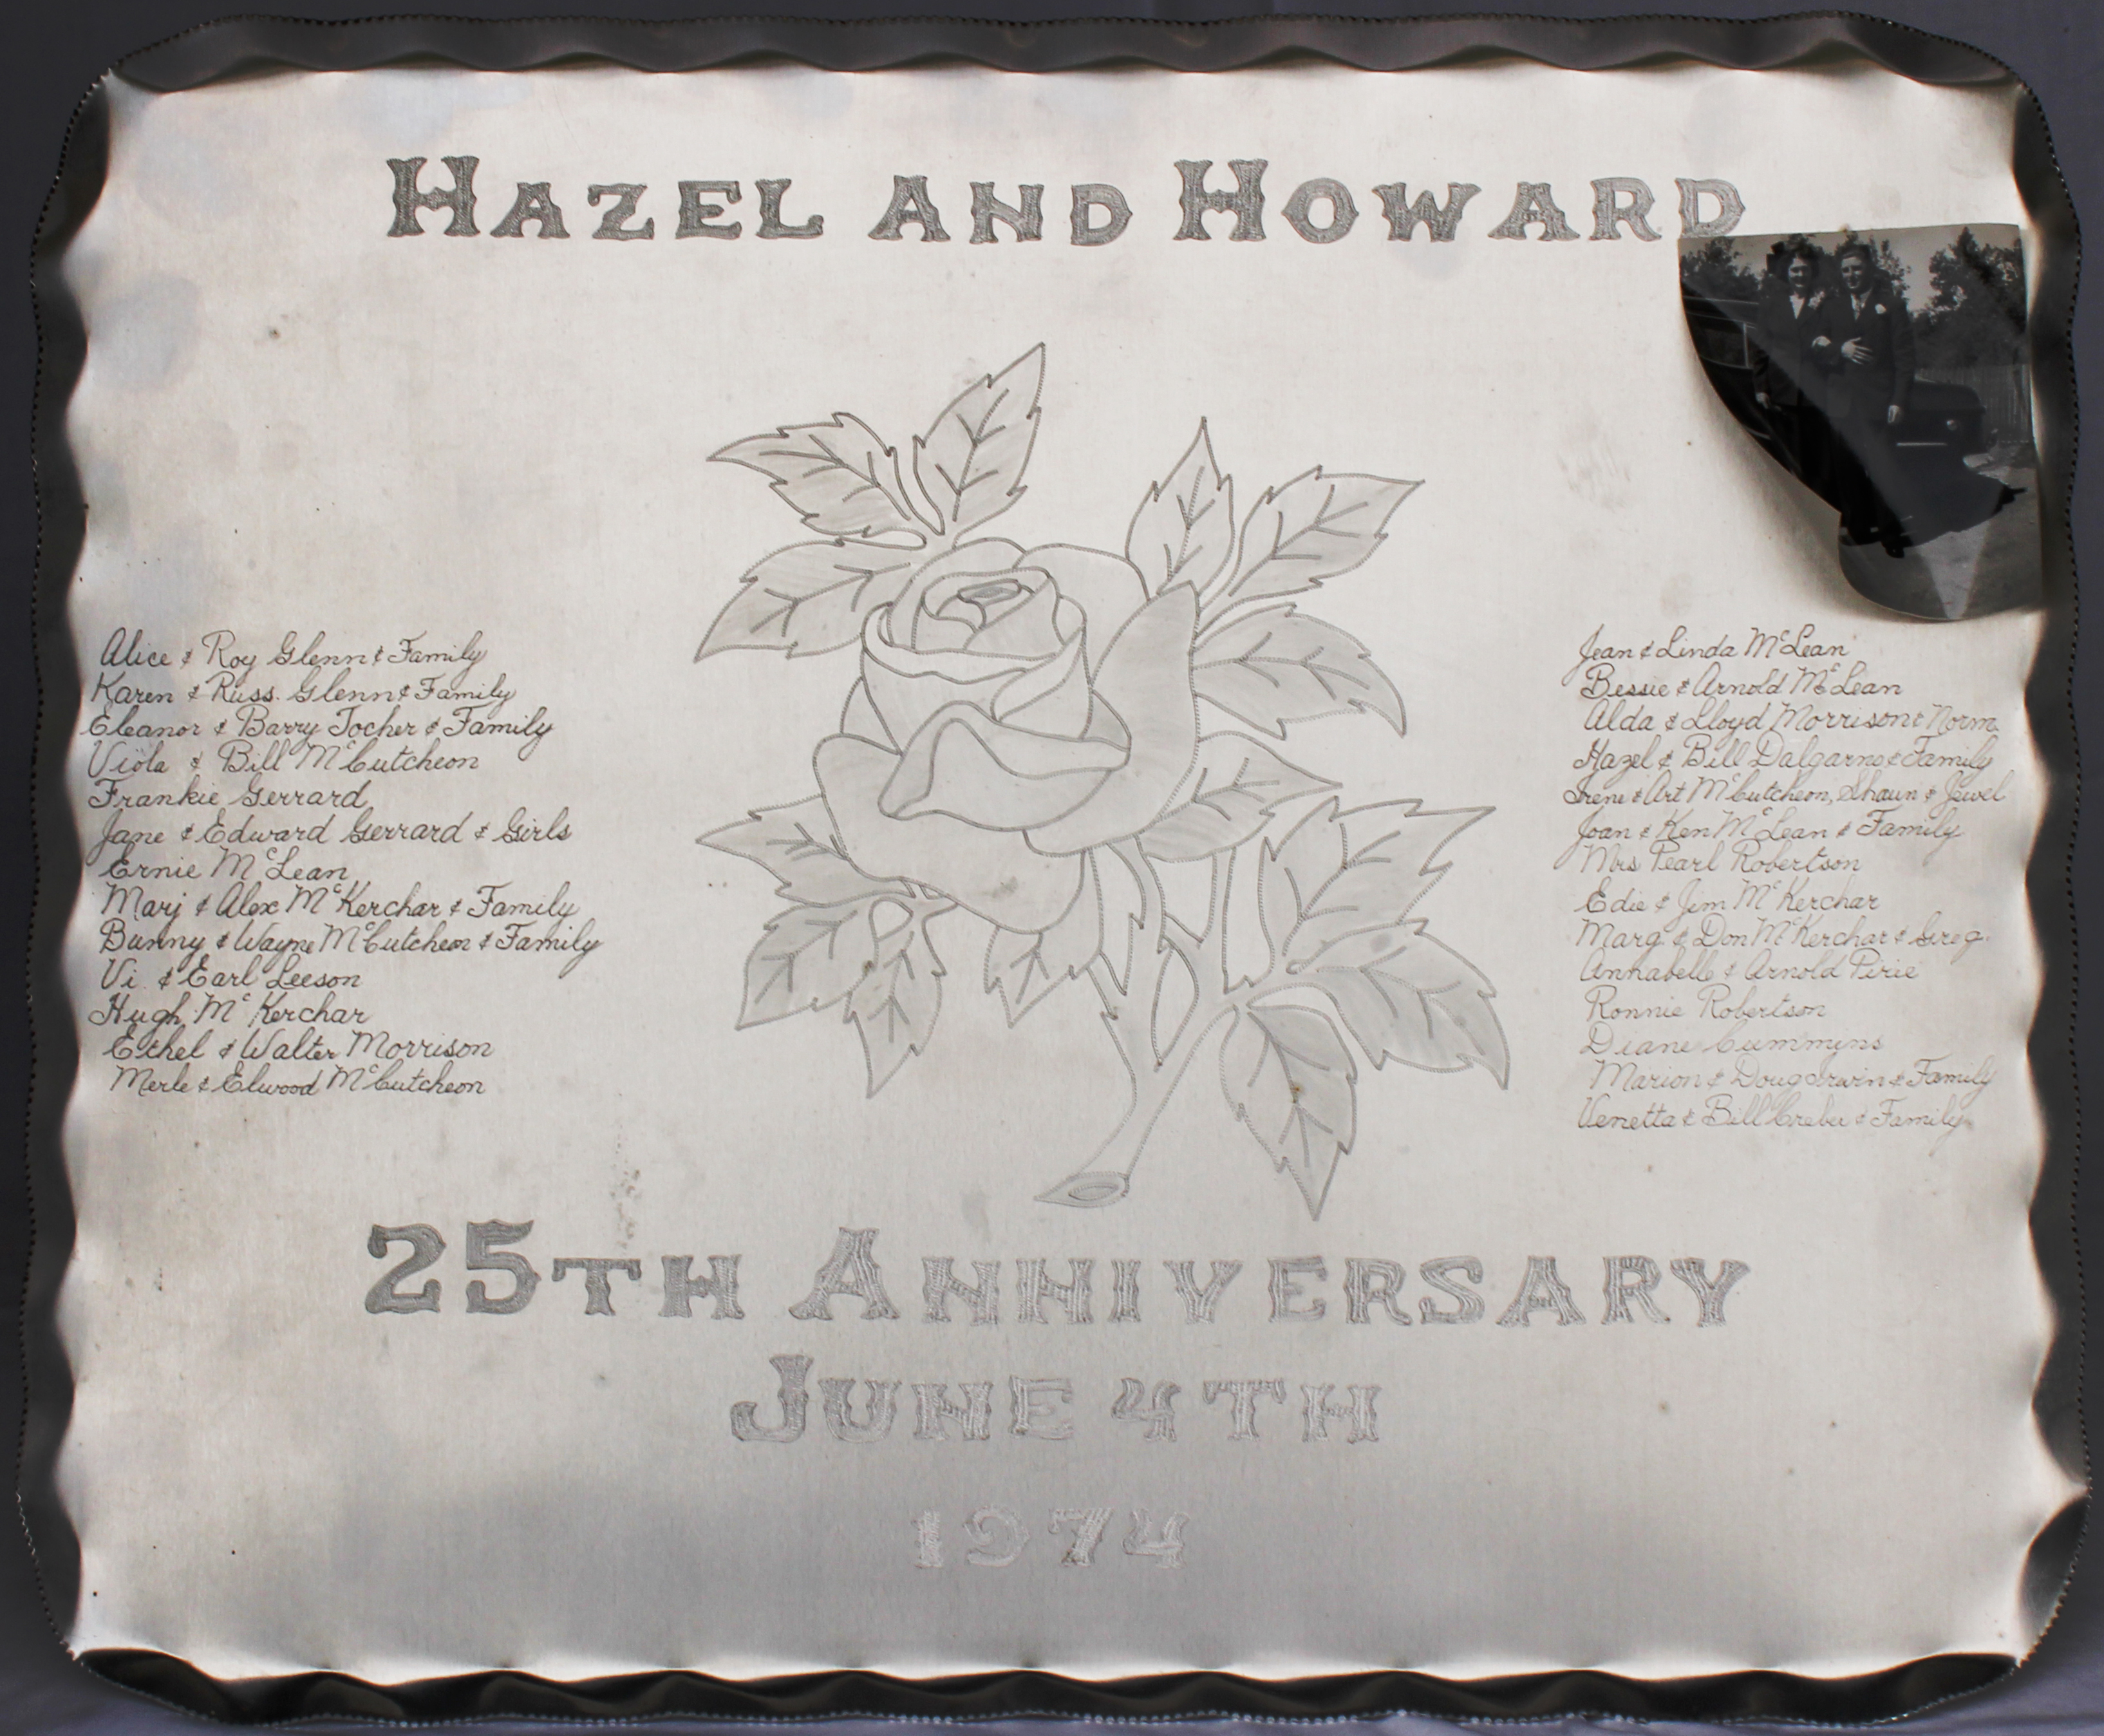 Hazel and Howard
Alice & Roy Glenn & Family
Karen & Russ. Glenn & Family
Eleanor & Barry Tocher & Family
Viola & Bill McCutcheon
Frankie Gerrard
Jane & Edward Gerrard & Girls
Ernie McLean
Marj & Alex McKerchar & Family
Bunny & Wayne McCutcheon & Family
Vi. & Earl Leeson
Hugh McKerchar
Ethel & Walter Morrison
Merle & Elwood McCutcheon
Jean & Linda McLean
Bessie & Arnold McLean
Alda & Lloyd Morrison & Norm.
Hazel & Bill Dalgarno & Family
Irene & Art McCutcheon, Shaun & Jewel
Joan & Ken McLean & Family
Mrs Pearl Robertson
Edie & Jim McKerchar
Marg. & Don McKerchar & Greg.
Annabelle & Arnold Pirie
Ronnie Robertson
Diane Cummins
Marion & Doug Irwin & Family
Venetta & Bill Creber & Family
25th Anniversary
June 4th
1974